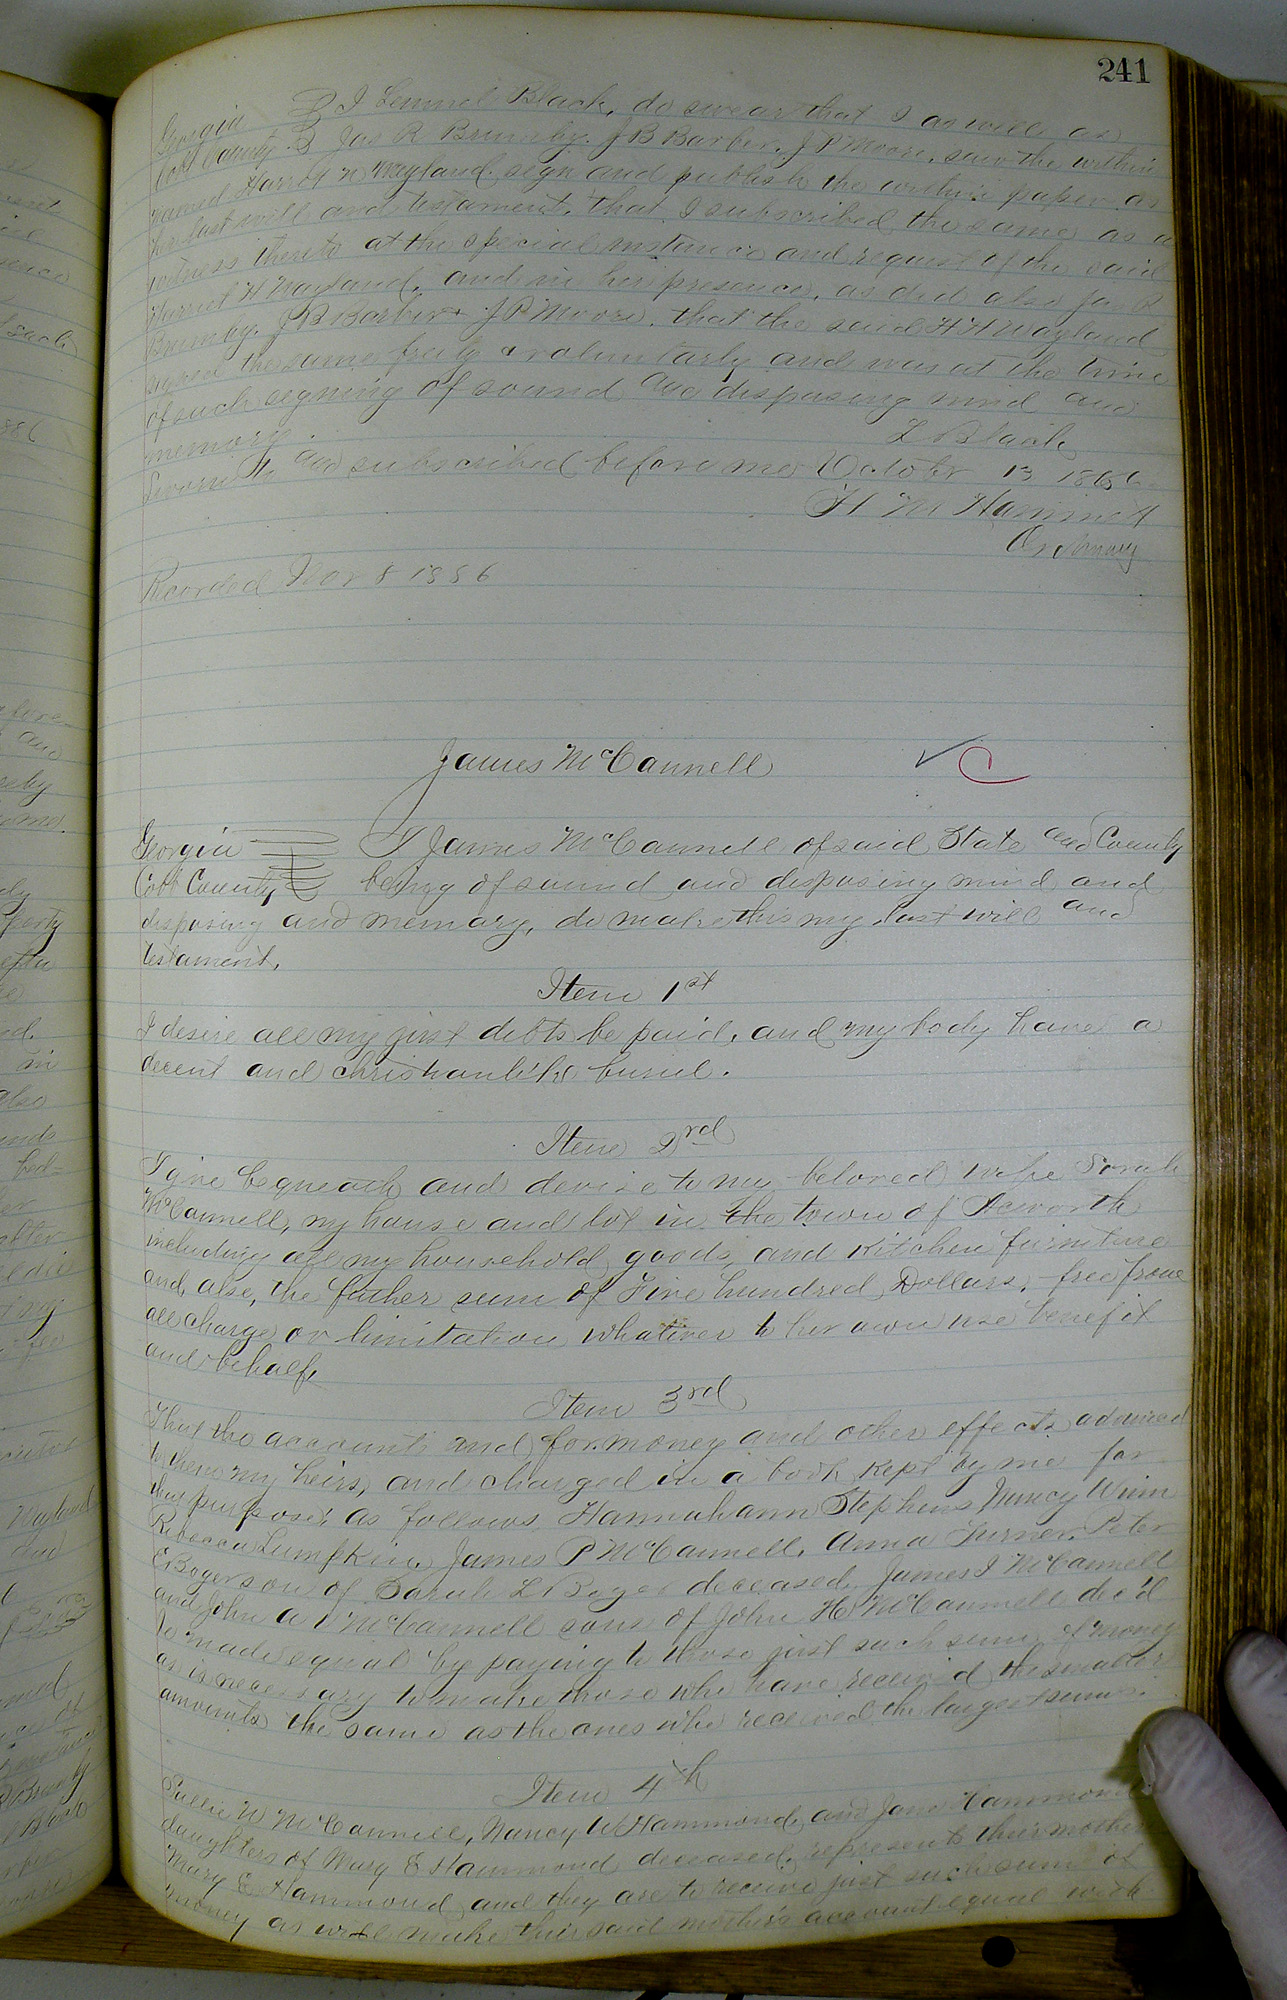 241
Georgia } I Lemuel Black, do swear that I as well as
Cobb County } Jas R Brumby. J B Barber. J P Moore, saw the within
named Harriet H Wayland sign and publish the within paper as
her last will and testament, that I subscribed the same as a
witness thereto at the special instance and request of the said
Harriet H Wayland, and in her presence, as did also Jas R
Brumby. J B Barber & J P Moore, that the said H H Wayland
signed the same freely & voluntarly and was at the time
of such signing of sound and disposing mind and
memory.
L Black
Sworn to and subscribed before me October 13 1886
H M Hammett
Ordinary
Recorded Nov 8 1886
James McCannell
Georgia } I James McCannell of said State and County
Cobb County } being of sound and disposing mind and
disposing and memary, do make this my last will and
testament.
Item 1st
I desire all my just debts be paid, and my body have a
decent and christianlike buriel.
Item 2rd
I give bequeath and devise to my beloved wife Sarah
McCannell, my house and lot in the town of Acworth
including all my household goods, and kitchen furniture
and, also, the futher sum of Five hundred Dollars, free from
all charge or limitation whatever to her own use benefit
and behalf.
Item 3rd
That the accounts and for money and other effects advanced
to them my heirs, and charged in a book kept by me for
that purpose, as follows, Hannahann Stephens Nancy Winn
Rebecca Lumpkin, James P McCannell. Anna Turner. Peter
E Boger son of Sarah L Boger deceased, James I McCannell
and John A V McCannell sons of John H McCannell dec'd
be made equal by paying to those just such sums of money
as is necessary to make those who have received the smaller
amounts the same as the ones who received the largest sums.
Item 4th
Sallie W McCannell, Nancy W Hammond, and Jane Hammond
daughters of Mary E Hammond deceased, represents their mother
Mary E Hammond, and they are to receive just such sum of
money as will make their said mother's account equal with